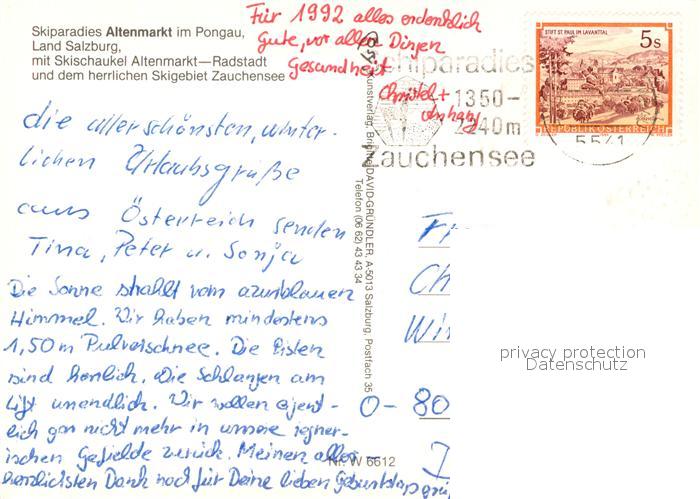 Skiparadies Altenmarkt im Pongau,
Land Salzburg,
mit Skischaukel Altenmarkt—Radstadt
und dem herrlichen Skigebiet Zauchensee
Für 1992 alles erdenklich
Gute, vor allen Dingen
Gesundheit
Christel +
Anhang
die allerschönsten, winter-
lichen Urlaubsgrüße
aus Österreich senden
Tina, Peter u. Sonja
Die Sonne strahlt vom azurblauen
Himmel. Wir haben mindestens
1,50 m Pulverschnee. Die Pisten
sind herrlich. Die Schlangen am
Lift unendlich. Wir wollen eigent-
lich gar nicht mehr in unsere regner-
ischen Gefielde zurück. Meinen aller-
herzlichsten Dank noch für Deine lieben Geburtstagsgrü
Kunstverlag, Brigitte DAVID-GRÜNDLER, A-5013 Salzburg, Postfach 35
Telefon (06 62) 43 43 34
Nr. W 6612
STIFT ST. PAUL IM LAVANTTAL
5s
REPUBLIK ÖSTERREICH
Schiparadies
1350-
2140m
Zauchensee
5541
Fr
Ch
Wi
0- 80
privacy protection
Datenschutz